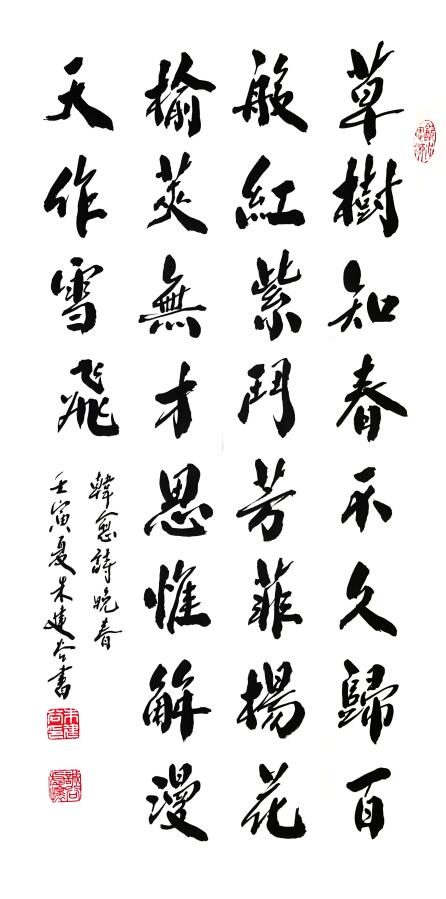 草樹知春不久歸百
般紅紫鬥芳菲揚花
榆莢無才思惟解漫
天作雪飛
韓愈詩晚春
壬寅夏朱建書